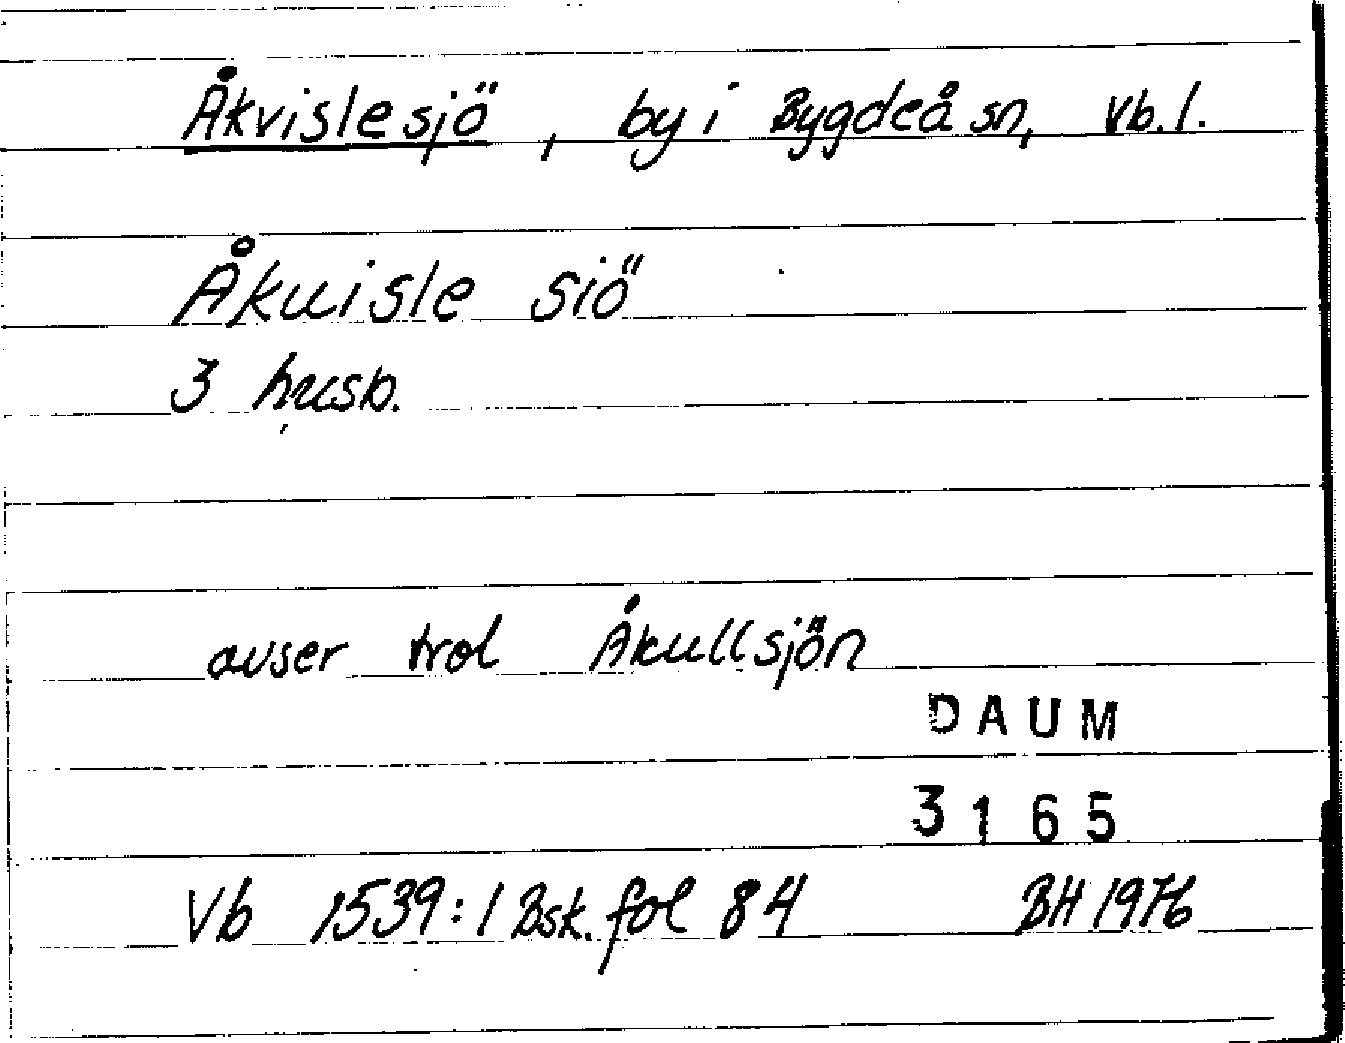 Åkvislesjö, by i Bygdeå sn, Vb.l.
Åkuisle siö
3 husb.
avser trol Åkullsjön
DAUM
3165
Vb 1539:1 Bsk. fol 84 BH 1976